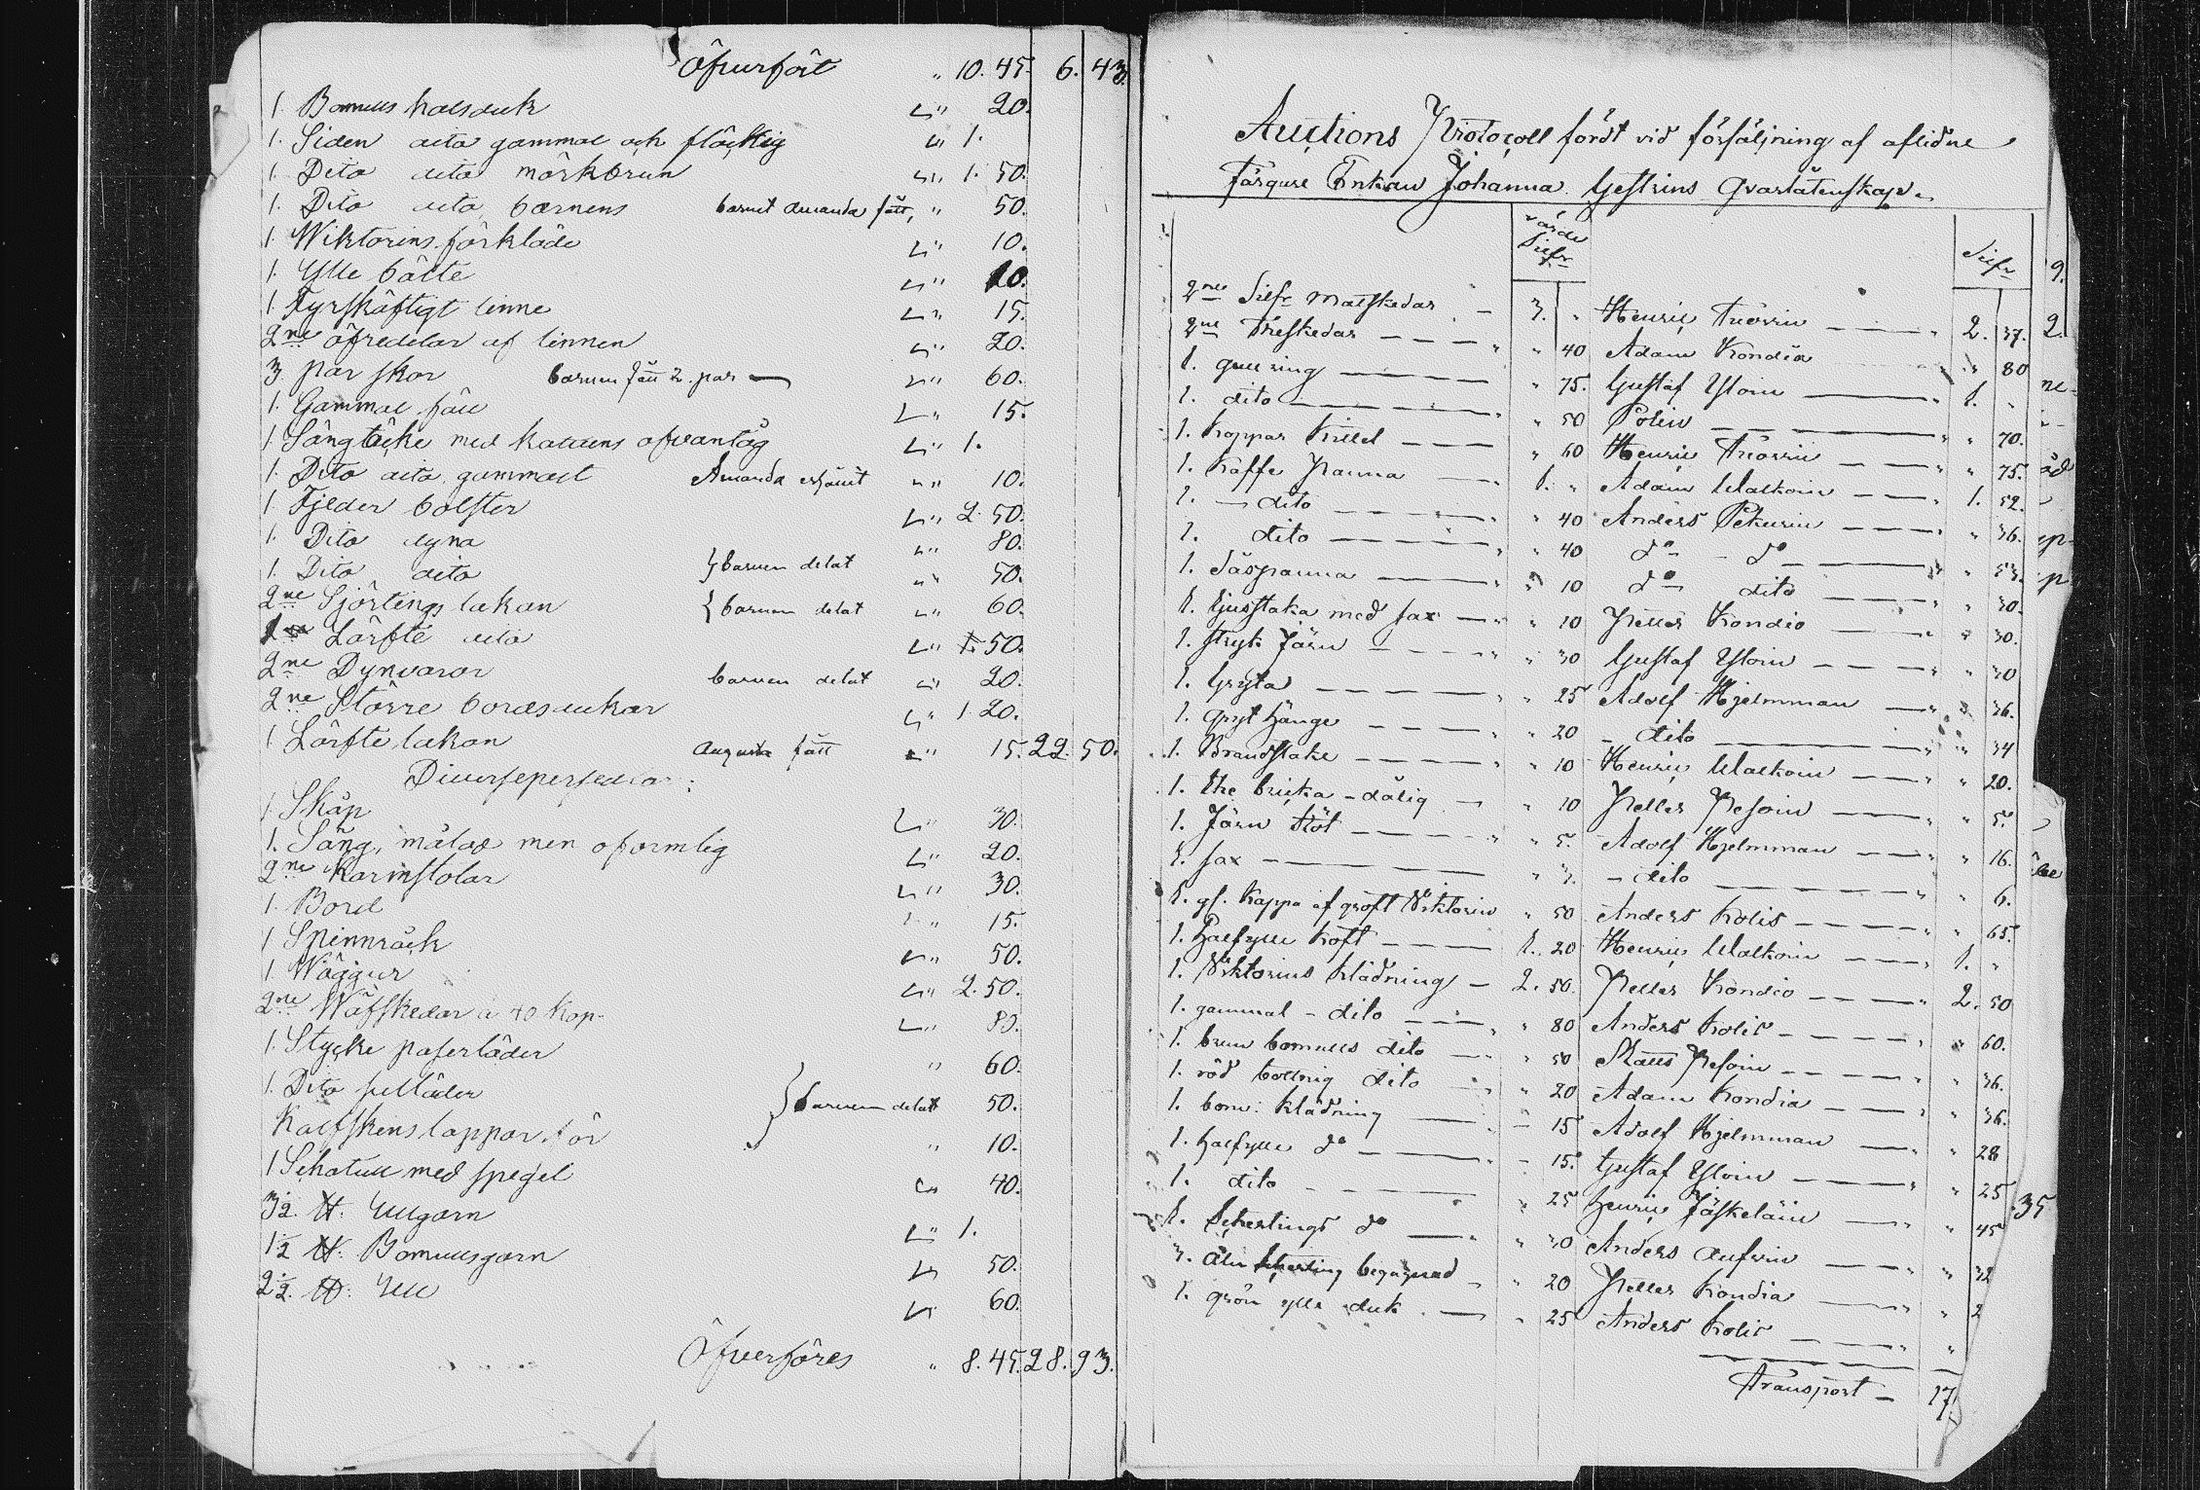 Öfverfört " 10. 45. 6. 43.
1. Bomulls halsduk " 20.
1. Siden dito gammal och fläckig " 1.
1. Dito dito mörkbrun " 1. 50.
1. Dito dito barnens barnet Amanda fått, " 50.
1. Wiktorins förkläde " 10.
1. Ylle bälte " 10.
1. Fyrskäftigt linne " 15.
2ne öfredelar af linnen " 20.
3 par skor barnen fått 2. par — " 60.
1. Gammal fäll " 15.
1 Sängtäcke med kattuns ofvantåg " 1.
1. Dito dito gammalt Amanda " 10.
1 Fjeder bolster " 2. 50.
1. Dito dyna " 80.
1. Dito dito } barnen delat " 50.
2ne Sjörtings lakan { barnen delat " 60.
Lärfts dito " 50.
2ne Dynvaror barnen delat " 20.
2ne Större bordsdukar " 1. 20.
1 Lärfts lakan Augusta fått " 15. 22. 50.
Diversepersedlar:
1 Skåp " 30.
1. Säng, målad men oformlig " 20.
2ne Karmstolar " 30.
1. Bord " 15.
1 Spinnråck " 50.
1 Wäggur " 2. 50.
2ne Wäfskedar à 40 Kop. " 80.
1. Stycke läder " 60.
1. Dito läder } barnen delat 50.
Kalfskins lappar för " 10.
1 Schatull med spegel " 40.
3½. ℔. Ullgarn " 1.
1½ ℔. Bomullsgarn " 50.
2½. ℔. Ull " 60.
Öfverföres " 8. 45. 28. 93.
Auctions Protocoll fördt vid försäljning af aflidne
Färgare Enkan Johanna Gestrins Qvarlåtenskap.
värde Silfr Silfr
2ne Silfr Matskedar — 3. " Henric — 2. 37.
2ne Theskedar — " 40 Adam Kondia " 80
1. gull ring — " 75. Gustaf Yloin — 1. "
1. dito — " 50 Polin — " 70.
1. Koppar Kittel — " 60 Henric — " 75.
1. Kaffe Panna — 1. " Adam Walkoin — 1. 52.
1. — dito — " 40 Anders Pekurin — " 36.
1. dito — " 40 do — do — "
1. Såspanna — " 10 do — dito — " 30.
1. Ljusstaka med sax — " 10 Petter Kondia — " 30.
1. Stryk Järn — " 30 Gustaf Yloin — " 30
1. Gryta — " 25 Adolf Hjelmman — " 36.
1. Gryt hänge — " 20 — dito — " 34
1. Brandstake — " 10 Henric Walkoin — " 20.
1. The bricka — dålig — " 10 Petter Pesoin — " 5.
1. Järn — " 5. Adolf Hjelmman — " 16.
1. sax — " 3. — dito — " 6.
1. gl. Kappa af gröft Wiktorin " 50 Anders Kolis — " 65.
1. Halfylle Koft — 1. 20 Henric Walkoin — 1. "
1. Wiktorins Klädning — 2. 50. Petter Kondia — 2. 50
1. gammal — dito — " 80 Anders Kolis — " 60.
1. brun bomulls dito — " 50 Matts Pesoin — " 36.
1. röd dito " 20 Adam Kondia — " 36.
1. bom: klädning — 15 Adolf Hjelmman — " 28
1. halfylle do — 15. Gustaf Yloin — " 25
1. dito — " 25 Henric Jäskeläin — " 45
1. Schertings do — " 30 Anders — " 32
3. Aln Scherting begagnad — " 20 Petter Kondia — " 2
1. grön ylle duk — " 25 Anders Kolis — "
Transport — 17.
9.
2.
35